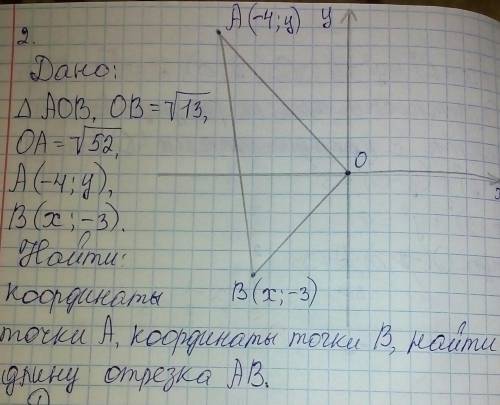 2.
A(-4;y) y
Дано:
△ AOB, OB=√13,
OA=√52,
A(-4;y),
O
x
B(x;-3).
Найти:
координаты
B(x;-3)
точки A, координаты точки B, найти
длину отрезка AB.